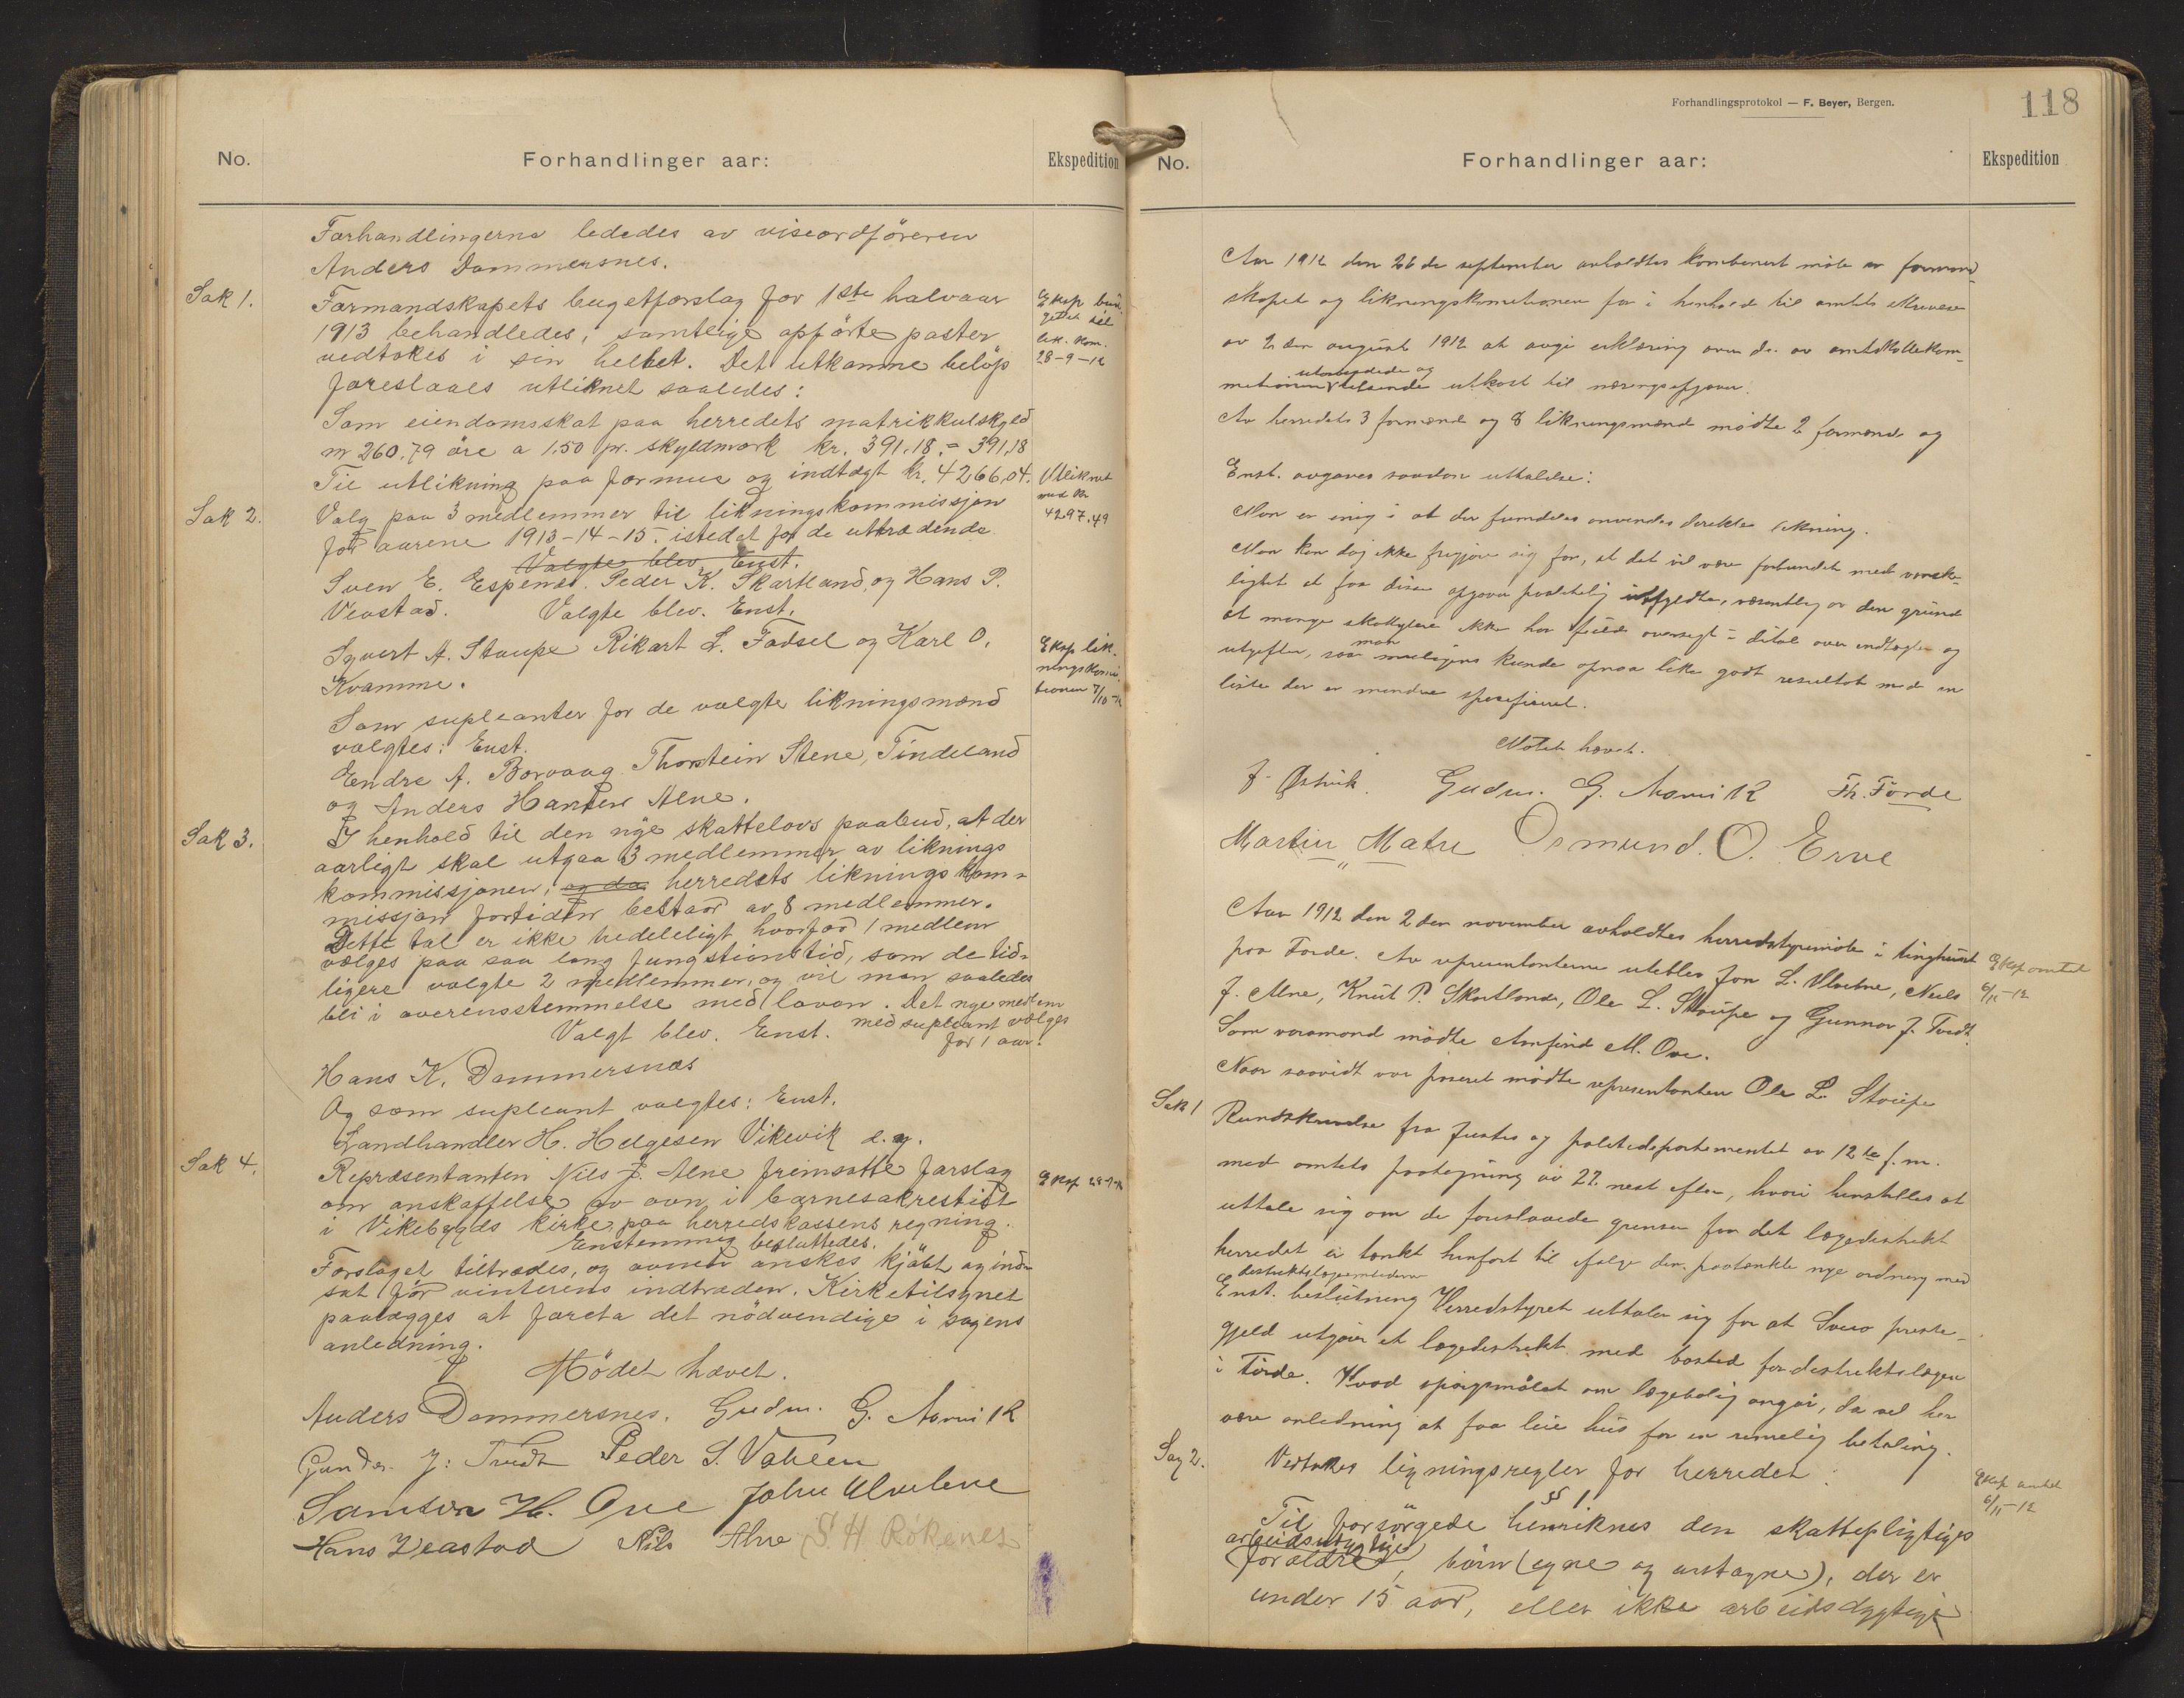 No.
Forhandlinger aar:
Ekspedition
Forhandlingerne lededes av viseordföreren
Anders Dommersnes.
Sak 1.
Formandskapets bugetforslag for 1ste halvaar
1913 behandledes, samtlige opförte poster
vedtokes i sin helhet. Det utkomne belöp
foreslaaes utliknet saaledes:
Eksp bud-
gettet til
lik. kom.
28-9-12
Som eiendomsskat paa herredets matrikkulskyld
m 260,79 öre a 1.50 pr. skyldmark kr. 391,18 = 391,18
Til utlikning paa formue og indtægt kr. 4266,04.
Utliknet
med kr
4297.49
Sak 2.
Valg paa 3 medlemmer til likningskommissjon
for aarene 1913-14-15. istedet for de uttrædende
Valgte blev Enst.
Sven E. Espenes. Peder K. Skartland, og Hans P.
Veastad. Valgte blev. Enst.
Syvert A. Stoupe Rikart L. Fadsel og Karl O.
Kvamme.
Eksp lik-
ningskomi-
tionen 7/10-12
Som supleanter for de valgte likningsmænd
valgtes: Enst.
Endre A. Borvaag. Thorstein Stene, Tindeland
og Anders Hansen Alne.
Sak 3.
I henhold til den nye skattelovs paabud, at der
aarligt skal utgaa 3 medlemmer av liknings
kommissjonen, og da herredets liknings kom-
missjon fortiden bestaar av 8 medlemmer.
Dette tal er ikke tredeleligt hvorfor 1 medlem
vælges paa saa lang fungstionstid, som de tid-
ligere valgte 2 medlemmer, og vil man saaledes
bli i overensstemmelse med loven. Det nye medlem
med supleant vælges
for 1 aar.
Valgt blev. Enst.
Hans K. Dommersnæs
Og som supleant valgtes: Enst.
Landhandler H. Helgesen Vikevik d.y.
Sak 4.
Repræsentanten Nils J. Alne fremsatte forslag
om anskaffelse av ovn i barnesakrestiet
i Vikebygds kirke, paa herredskassens regning.
Eksp 28-9-12
Enstemmig besluttedes.
Forslaget tiltrædes, og ovnen önskes kjöbt og ind-
sat för vinterens indtræden. Kirketilsynet
paalægges at foreta det nödvendige i sagens
anledning.
Mödet hævet.
Anders Dommersnes. Gudm. G. Aarvik
Gunder J: Tvedt Peder S. Vatleen
Samson H. Ove John Ulveline
Hans Veastad Nils Alne S. H Rökenes
Forhandlingsprotokol — F. Beyer, Bergen.
118
No.
Forhandlinger aar:
Ekspedition
Aar 1912 den 26de september avholdtes kombinert möte av formand-
skapet og likningskomitionen for i henhold til amtets skrivelse
av 2den august 1912 at avgi erklæring over de av amtskattekom-
utarbeidede og
utkast til næringsopgaver.
Av herredets 3 formænd og 8 likningsmænd mödte 2 formænd og
Enst. avgaves saadan uttalelse:
Man er enig i at der fremdeles anvendes direkte likning.
Man kan dog ikke frigjöre sig for, at det vil være forbundet med vanske-
lighet at faa disse opgaver paalitelig utfyldte, væsentlig av den grund
at mange skatydere ikke har fuld oversegt i dital over indtægter og
utgifter, saa man muligens kunde opnaa like godt resultat med en
liste der er mindre spesifisert.
Mötet hævet.
J. Östvik. Gudm. G. Aarvik Th. Förde
Martin Matre Osmund. O. Erve
Aar 1912 den 2den november avholdtes herredstyremöte i tinghuset
paa Förde. Av representanterne uteblev Jon L. Ulveline, Neels
J. Alne, Knut P. Skartland, Ole L. Stoupe og Gunnar J. Tvedt
Som varamand mödte Arnfind M. Ove.
Naar saavidt var passeret mödte representanten Ole L. Stoupe
Eksp amtet
6/11-12
Sak 1
Rundskrivelse fra Justis og politidepartementet av 12te f.m.
med amtets paategning av 22 nest efter, hvori henstilles at
uttale sig om de foreslaaede grenser for det lægedistrikt
herredet er tænkt henfört til ifölge den paatænkte nye ordning med
distriktslægeembederne
Enst. beslutning Herredstyret uttaler sig for at Sveio preste-
gjeld utgjör et lægedistrikt med bosted for distriktslægen
i Förde. Hvad spörgsmålet om lægebolig angår, da vil her
være anledning at faa leie hus for en rimelig betaling.
Sag 2.
Vedtokes ligningsregler for herredet
Eksp amtet
6/11-12
§§ 1
Til forsörgede henriknes den skattepligtiges
arbeidsudygtige
forældre, börn (egne og antagne), der er
under 15 aar, eller ikke arbeidsdygtige